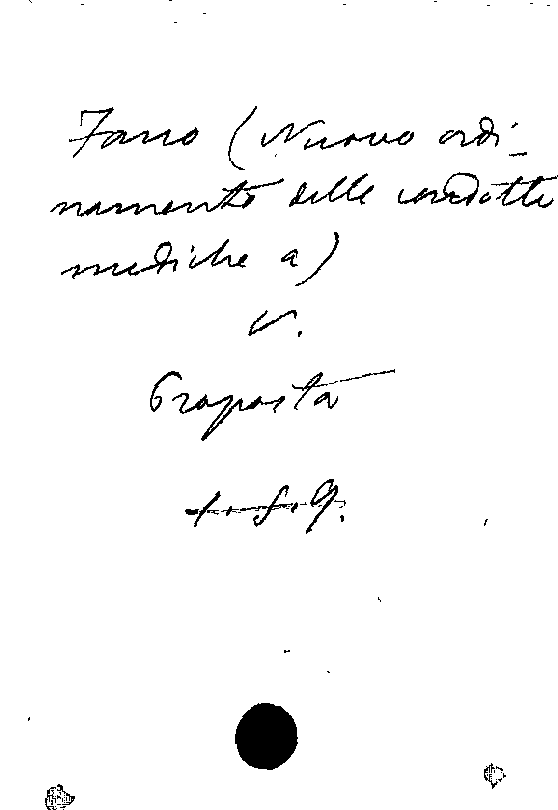 Fano (Nuovo ordi-
namento delle condotte
mediche a)
v.
Proposta